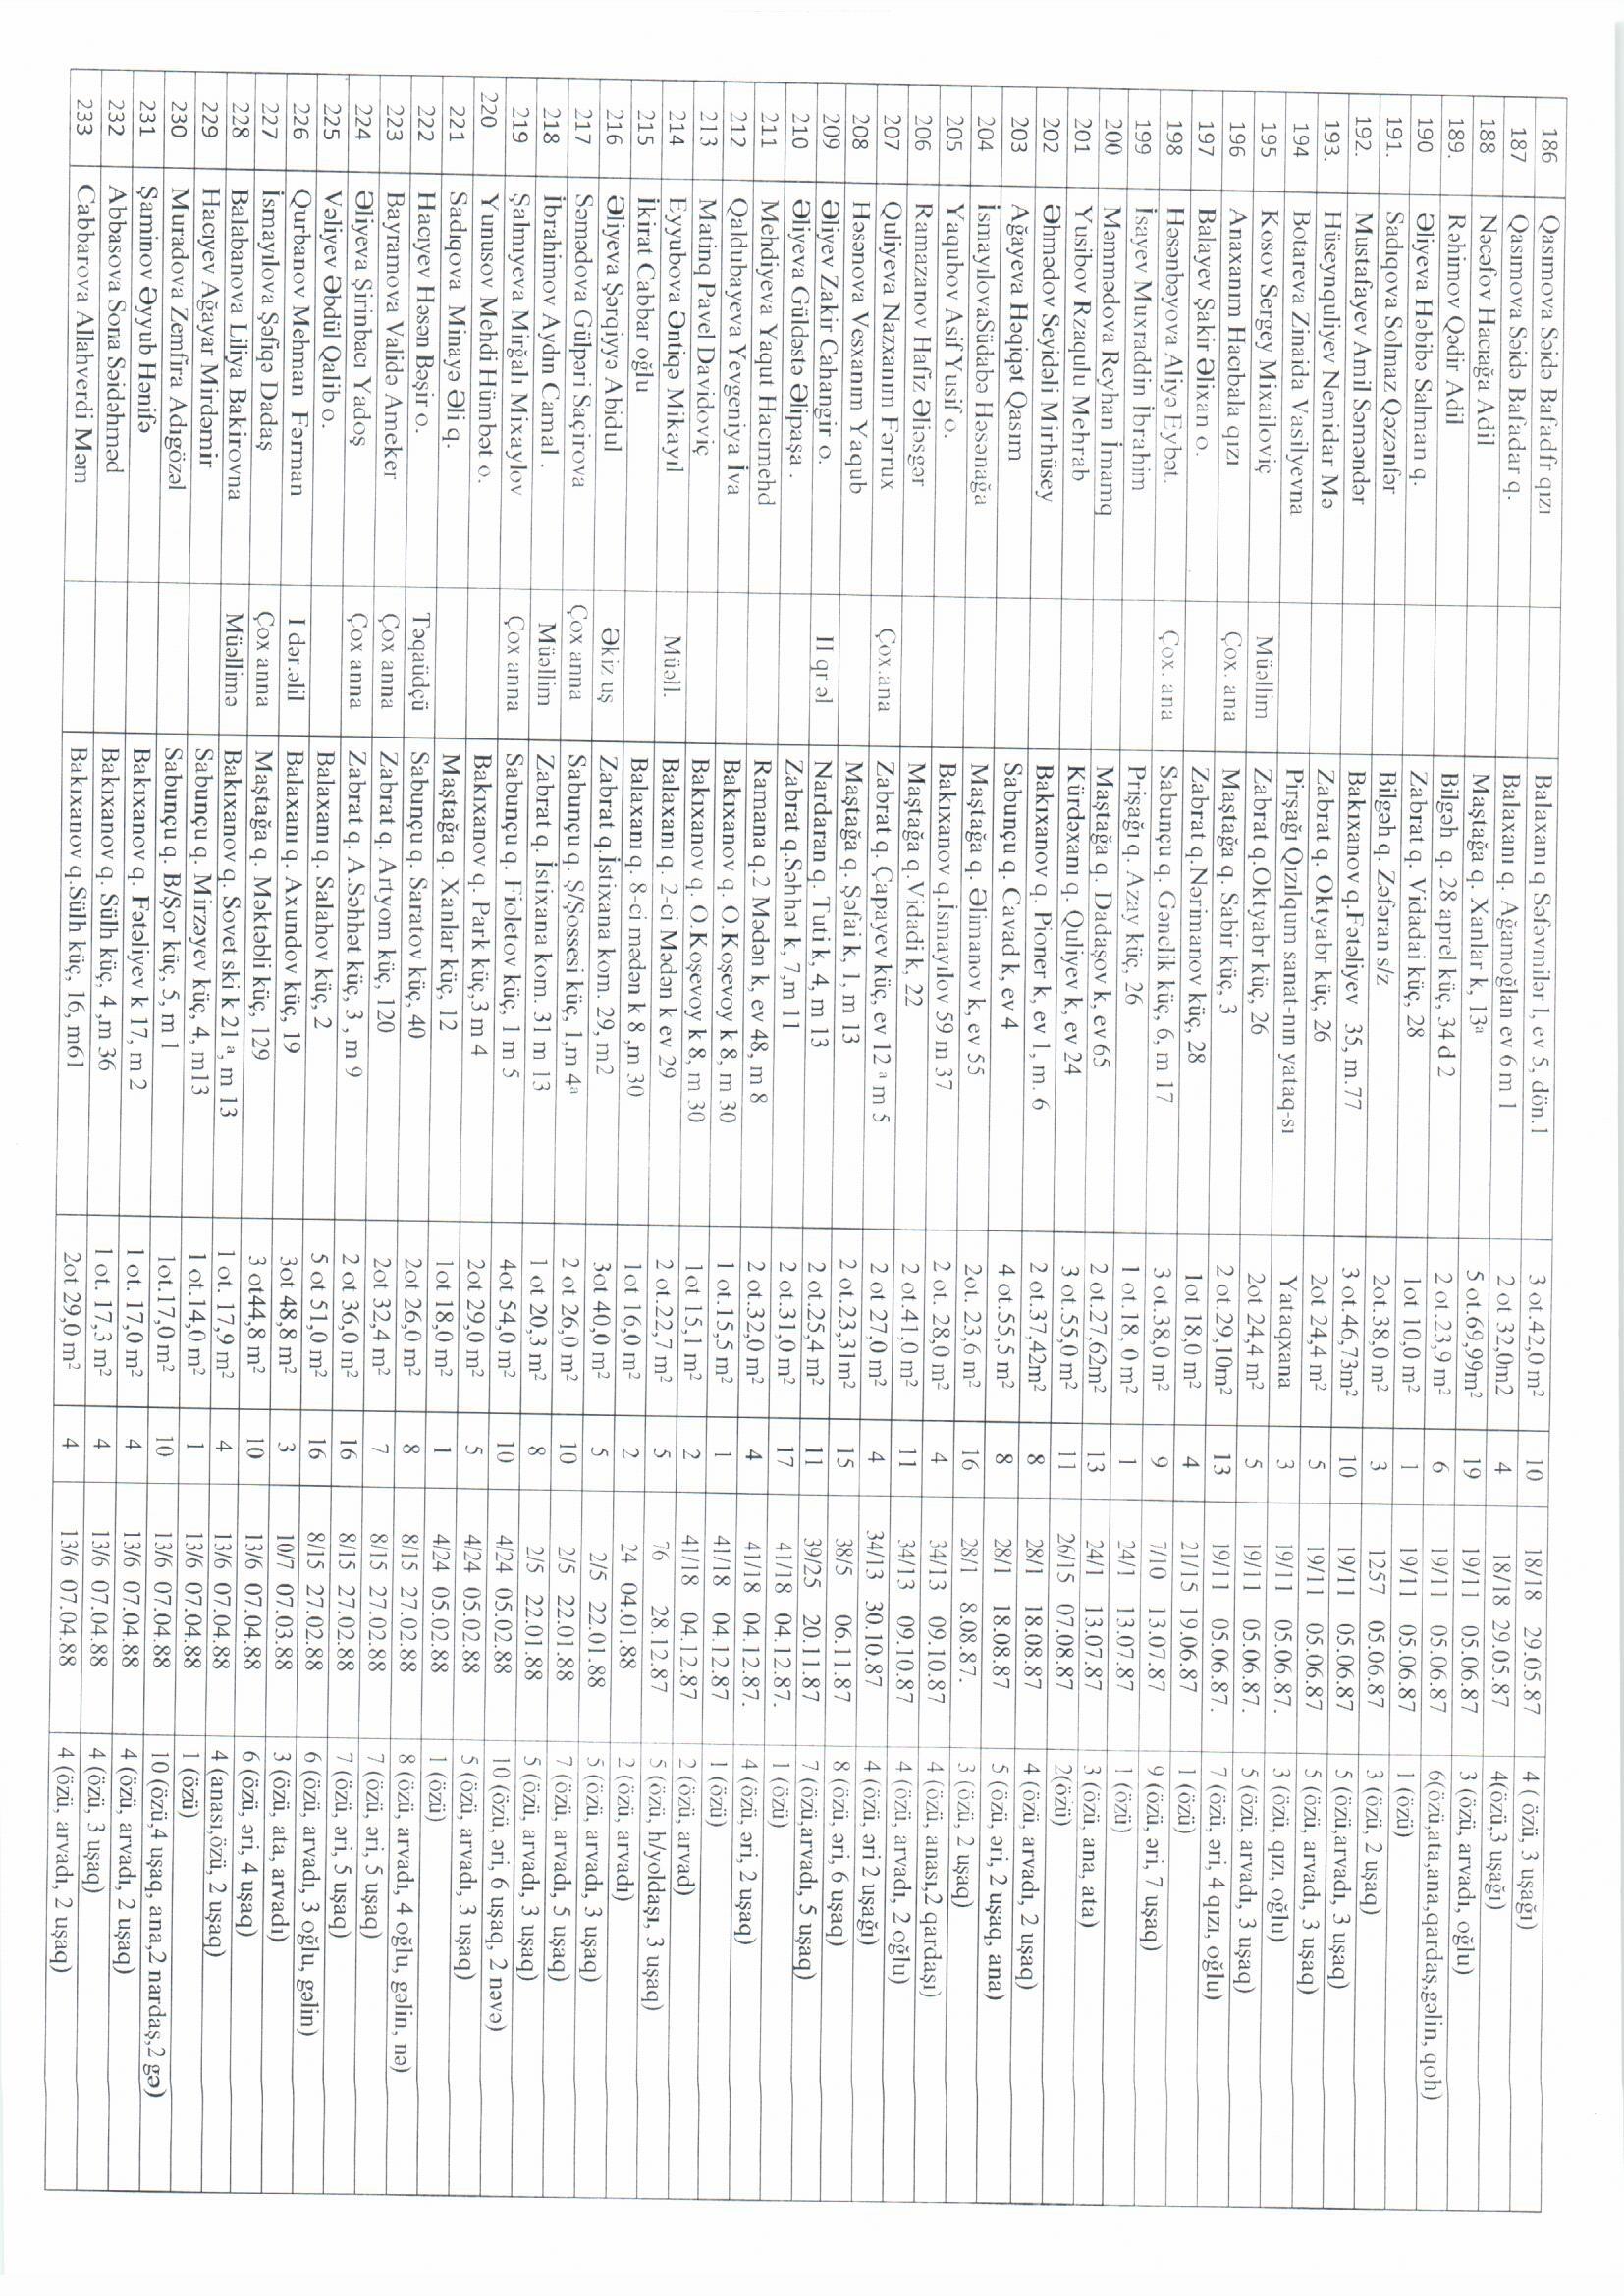 186 Qasımova Səidə Bafadfr qızı Balaxanı q Səfəvmilər 1, ev 5, dön.1 3 ot.42,0 m² 10 18/18 29.05.87 4 ( özü, 3 uşağı)
187 Qasımova Səidə Bafadar q. Balaxanı q. Ağamoğlan ev 6 m 1 2 ot 32,0m2 4 18/18 29.05.87 4(özü,3 uşağı)
188 Nəcəfov Hacıağa Adil Maştağa q. Xanlar k, 13ª 5 ot.69,99m² 19 19/11 05.06.87 3 (özü, arvadı, oğlu)
189. Rəhimov Qədir Adil Bilgəh q. 28 aprel küç, 34 d 2 2 ot.23,9 m² 6 19/11 05.06.87 6(özü,ata,ana,qardaş,gəlin, qoh)
190 Əliyeva Həbibə Salman q. Zabrat q. Vidadai küç, 28 1ot 10,0 m² 1 19/11 05.06.87 1 (özü)
191. Sadıqova Solmaz Qəzənfər Bilgəh q. Zəfəran s/z 2ot.38,0 m² 3 1257 05.06.87 3 (özü, 2 uşaq)
192. Mustafayev Amil Səməndər Bakıxanov q.Fətəliyev 35, m.77 3 ot.46,73m² 10 19/11 05.06.87 5 (özü,arvadı, 3 uşaq)
193. Hüseynquliyev Nemidar Mə Zabrat q. Oktyabr küç, 26 2ot 24,4 m² 5 19/11 05.06.87 5 (özü, arvadı, 3 uşaq)
194 Botareva Zinaida Vasilyevna Pirşağı Qızılqum sanat-nın yataq-sı Yataqxana 3 19/11 05.06.87. 3 (özü, qızı, oğlu)
195 Kosov Sergey Mixailoviç Müəllim Zabrat q.Oktyabr küç, 26 2ot 24,4 m² 5 19/11 05.06.87. 5 (özü, arvadı, 3 uşaq)
196 Anaxanım Hacıbala qızı Çox. ana Maştağa q. Sabir küç, 3 2 ot.29,10m² 13 19/11 05.06.87. 7 (özü, əri, 4 qızı, oğlu)
197 Balayev Şakir Əlixan o. Zabrat q.Nərimanov küç, 28 1ot 18,0 m² 4 21/15 19.06.87 1 (özü)
198 Həsənbəyova Aliyə Eybət. Çox. ana Sabunçu q. Gənclik küç, 6, m 17 3 ot.38,0 m² 9 7/10 13.07.87 9 (özü, əri, 7 uşaq)
199 İsayev Muxraddin İbrahim Prişağı q. Azay küç, 26 1 ot.18, 0 m² 1 24/1 13.07.87 1 (özü)
200 Məmmədova Reyhan İmamq Maştağa q. Dadaşov k, ev 65 2 ot.27,62m² 13 24/1 13.07.87 3 (özü, ana, ata)
201 Yusibov Rzaqulu Mehrab Kürdəxanı q. Quliyev k, ev 24 3 ot.55,0 m² 11 26/15 07.08.87 2(özü)
202 Əhmədov Seyidəli Mirhüsey Bakıxanov q. Pioner k, ev 1, m. 6 2 ot.37,42m² 8 28/1 18.08.87 4 (özü, arvadı, 2 uşaq)
203 Ağayeva Həqiqət Qasım Sabunçu q. Cavad k, ev 4 4 ot.55,5 m² 8 28/1 18.08.87 5 (özü, əri, 2 uşaq, ana)
204 İsmayılovaSüdabə Həsənağa Maştağa q. Əlimanov k, ev 55 2ot. 23,6 m² 16 28/1 8.08.87. 3 (özü, 2 uşaq)
205 Yaqubov Asif Yusif o. Bakıxanov q.İsmayılov 59 m 37 2 ot. 28,0 m² 4 34/13 09.10.87 4 (özü, anası,2 qardaşı)
206 Ramazanov Hafiz Əliəsgər Maştağa q.Vidadi k, 22 2 ot.41,0 m² 11 34/13 09.10.87 4 (özü, arvadı, 2 oğlu)
207 Quliyeva Nazxanım Fərrux Çox.ana Zabrat q. Çapayev küç, ev 12 ª m 5 2 ot 27,0 m² 4 34/13 30.10.87 4 (özü, əri 2 uşağı)
208 Həsənova Vesxanım Yaqub Maştağa q. Şəfai k, 1, m 13 2 ot.23,31m² 15 38/5 06.11.87 8 (özü, əri, 6 uşaq)
209 Əliyev Zakir Cahangir o. II qr əl Nardaran q. Tuti k, 4, m 13 2 ot.25,4 m² 11 39/25 20.11.87 7 (özü,arvadı, 5 uşaq)
210 Əliyeva Güldəstə Əlipaşa . Zabrat q.Səhhət k, 7,m 11 2 ot.31,0 m² 17 41/18 04.12.87. 1 (özü)
211 Mehdiyeva Yaqut Hacımehd Ramana q.2 Mədən k, ev 48, m 8 2 ot.32,0 m² 4 41/18 04.12.87. 4 (özü, əri, 2 uşaq)
212 Qaldubayeva Yevgeniya İva Bakıxanov q. O.Koşevoy k 8, m 30 1 ot.15,5 m² 1 41/18 04.12.87 1 (özü)
213 Matinq Pavel Davidoviç Bakıxanov q. O.Koşevoy k 8, m 30 1ot 15,1 m² 2 41/18 04.12.87 2 (özü, arvad)
214 Eyyubova Əntiqə Mikayıl Müəll. Balaxanı q. 2-ci Mədən k ev 29 2 ot.22,7 m² 5 76 28.12.87 5 (özü, h/yoldaşı, 3 uşaq)
215 İkirat Cabbar oğlu Balaxanı q. 8-ci mədən k 8 ,m 30 1ot 16,0 m² 2 24 04.01.88 2 (özü, arvadı)
216 Əliyeva Şərqiyyə Abidul Əkiz uş Zabrat q.İstixana kom. 29, m2 3ot 40,0 m² 5 2/5 22.01.88 5 (özü, arvadı, 3 uşaq)
217 Səmədova Gülpəri Saçirova Çox anna Sabunçu q. Ş/Şossesi küç, 1,m 4ª 2 ot 26,0 m² 10 2/5 22.01.88 7 (özü, arvadı, 5 uşaq)
218 İbrahimov Aydın Camal . Müəllim Zabrat q. İstixana kom. 31 m 13 1 ot 20,3 m² 8 2/5 22.01.88 5 (özü, arvadı, 3 uşaq)
219 Şalmıyeva Mirğalı Mixaylov Çox anna Sabunçu q. Fioletov küç, 1 m 5 4ot 54,0 m² 10 4/24 05.02.88 10 (özü, əri, 6 uşaq, 2 nəvə)
220 Yunusov Mehdi Hümbət o. Bakıxanov q. Park küç,3 m 4 2ot 29,0 m² 5 4/24 05.02.88 5 (özü, arvadı, 3 uşaq)
221 Sadıqova Minayə Əli q. Maştağa q. Xanlar küç, 12 1ot 18,0 m² 1 4/24 05.02.88 1 (özü)
222 Hacıyev Həsən Bəşir o. Təqaüdçü Sabunçu q. Saratov küç, 40 2ot 26,0 m² 8 8/15 27.02.88 8 (özü, arvadı, 4 oğlu, gəlin, nə)
223 Bayramova Validə Ameker Çox anna Zabrat q. Artyom küç, 120 2ot 32,4 m² 7 8/15 27.02.88 7 (özü, əri, 5 uşaq)
224 Əliyeva Şirinbacı Yadoş Çox anna Zabrat q. A.Səhhət küç, 3 , m 9 2 ot 36,0 m² 16 8/15 27.02.88 7 (özü, əri, 5 uşaq)
225 Vəliyev Əbdül Qalib o. Balaxanı q. Salahov küç, 2 5 ot 51,0 m² 16 8/15 27.02.88 6 (özü, arvadı, 3 oğlu, gəlin)
226 Qurbanov Mehman Fərman I dər.əlil Balaxanı q. Axundov küç, 19 3ot 48,8 m² 3 10/7 07.03.88 3 (özü, ata, arvadı)
227 İsmayılova Şəfiqə Dadaş Çox anna Maştağa q. Məktəbli küç, 129 3 ot44,8 m² 10 13/6 07.04.88 6 (özü, əri, 4 uşaq)
228 Balabanova Liliya Bakirovna Müəllimə Bakıxanov q. Sovet ski k 21 ª, m 13 1 ot. 17,9 m² 4 13/6 07.04.88 4 (anası,özü, 2 uşaq)
229 Hacıyev Ağayar Mirdəmir Sabunçu q. Mirzəyev küç, 4, m13 1 ot.14,0 m² 1 13/6 07.04.88 1 (özü)
230 Muradova Zemfira Adıgözəl Sabunçu q. B/Şor küç, 5, m 1 1ot.17,0 m² 10 13/6 07.04.88 10 (özü,4 uşaq, ana,2 nardaş,2 gə)
231 Şaminov Əyyub Hənifə Bakıxanov q. Fətəliyev k 17, m 2 1 ot. 17,0 m² 4 13/6 07.04.88 4 (özü, arvadı, 2 uşaq)
232 Abbasova Sona Səidəhməd Bakıxanov q. Sülh küç, 4 ,m 36 1 ot. 17,3 m² 4 13/6 07.04.88 4 (özü, 3 uşaq)
233 Cabbarova Allahverdi Məm Bakıxanov q.Sülh küç, 16, m61 2ot 29,0 m² 4 13/6 07.04.88 4 (özü, arvadı, 2 uşaq)